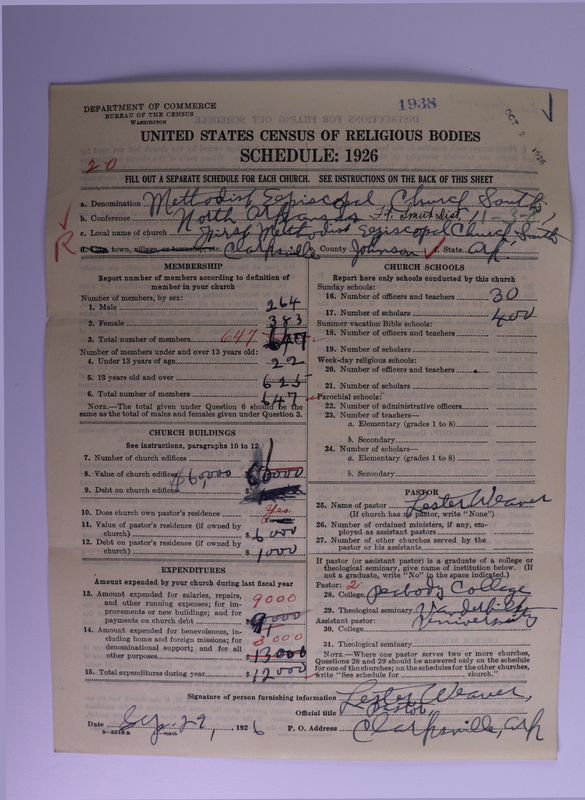 DEPARTMENT OF COMMERCE
BUREAU OF THE CENSUS
WASHINGTON
1938
OCT 2 1926
UNITED STATES CENSUS OF RELIGIOUS BODIES
SCHEDULE: 1926
2-0
FILL OUT A SEPARATE SCHEDULE FOR EACH CHURCH. SEE INSTRUCTIONS ON THE BACK OF THIS SHEET
a. Denomination Methodist Episcopal Church South
b. Conference North Arkansas Ft. Smith Dist.
c. Local name of church First Methodist Episcopal Church South
R
d. City, town, village, or township, etc. Clarksville e. County Johnson f. State Ark.
MEMBERSHIP
Report number of members according to definition of member in your church
Number of members, by sex:
1. Male 264
2. Female 383
3. Total number of members 647 647
Number of members under and over 13 years old:
4. Under 13 years of age 22
5. 13 years old and over 625
6. Total number of members 647
NOTE.—The total given under Question 6 should be the same as the total of males and females given under Question 3.
CHURCH BUILDINGS
See instructions, paragraphs 10 to 12
7. Number of church edifices 1
8. Value of church edifices $60000
9. Debt on church edifices $
10. Does church own pastor's residence Yes
11. Value of pastor's residence (if owned by church) $6000
12. Debt on pastor's residence (if owned by church) $1000
EXPENDITURES
Amount expended by your church during last fiscal year
13. Amount expended for salaries, repairs, and other running expenses; for improvements or new buildings; and for payments on church debt 9000 $9000
14. Amount expended for benevolences, including home and foreign missions; for denominational support; and for all other purposes 3000 $
15. Total expenditures during year $12000
CHURCH SCHOOLS
Report here only schools conducted by this church
Sunday schools:
16. Number of officers and teachers 30
17. Number of scholars 400
Summer vacation Bible schools:
18. Number of officers and teachers
19. Number of scholars
Week-day religious schools:
20. Number of officers and teachers
21. Number of scholars
Parochial schools:
22. Number of administrative officers
23. Number of teachers—
a. Elementary (grades 1 to 8)
b. Secondary
24. Number of scholars—
a. Elementary (grades 1 to 8)
b. Secondary
PASTOR
25. Name of pastor Lester Weaver
(If church has no pastor, write "None")
26. Number of ordained ministers, if any, employed as assistant pastors
27. Number of other churches served by the pastor or his assistants
If pastor (or assistant pastor) is a graduate of a college or theological seminary, give name of institution below. (If not a graduate, write "No" in the space indicated.)
Pastor: 2
28. College Peabody College
29. Theological seminary Vanderbilt University
Assistant pastor:
30. College
31. Theological seminary
NOTE.—Where one pastor serves two or more churches, Questions 28 and 29 should be answered only on the schedule for one of the churches; on the schedules for the other churches, write "See schedule for ______ church."
Signature of person furnishing information Lester Weaver,
Official title Pastor
Date Sep. 29, 1926
P. O. Address Clarksville, Ark
8-5518a